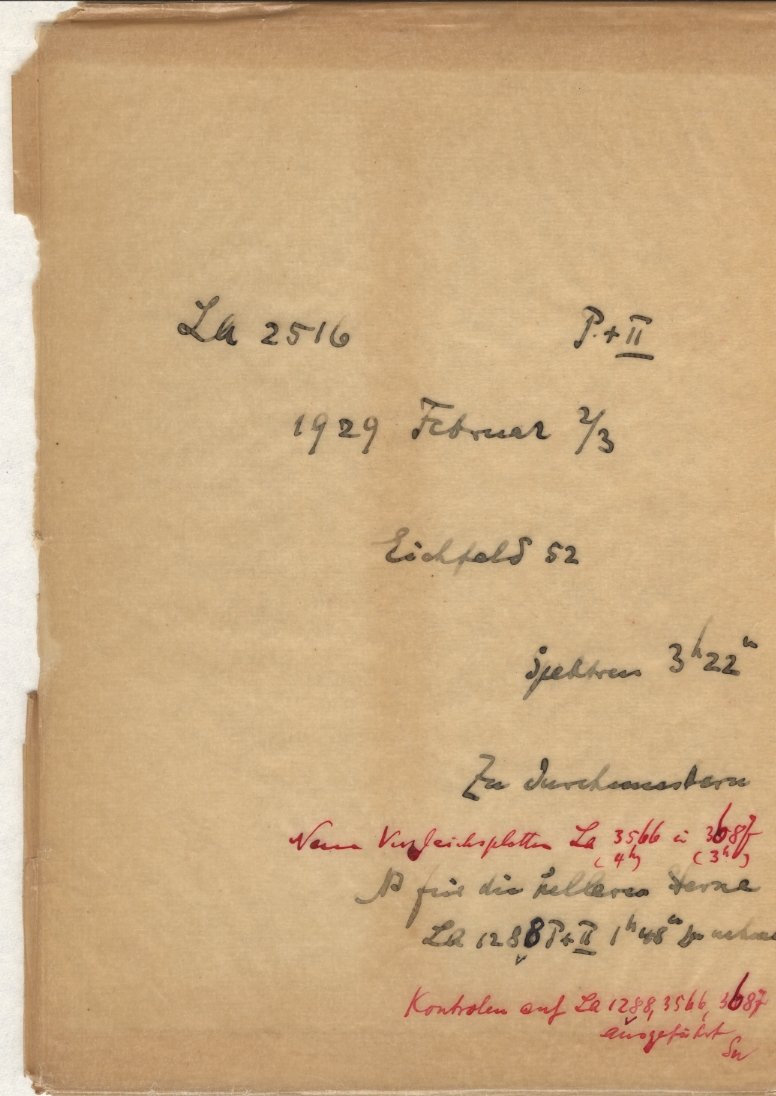 La 2516 P.+II
1929 Februar 2/3
Eichfeld 52
Spektren 3h22m
Zu durchmustern
Neue Vergleichsplatten La 3566 u 3687
(4h) (3h)
NB für die helleren Sterne
La 1288 P+II 1h48m zu nehmen
Kontrolen auf La 1288, 3566, 3687
ausgeführt